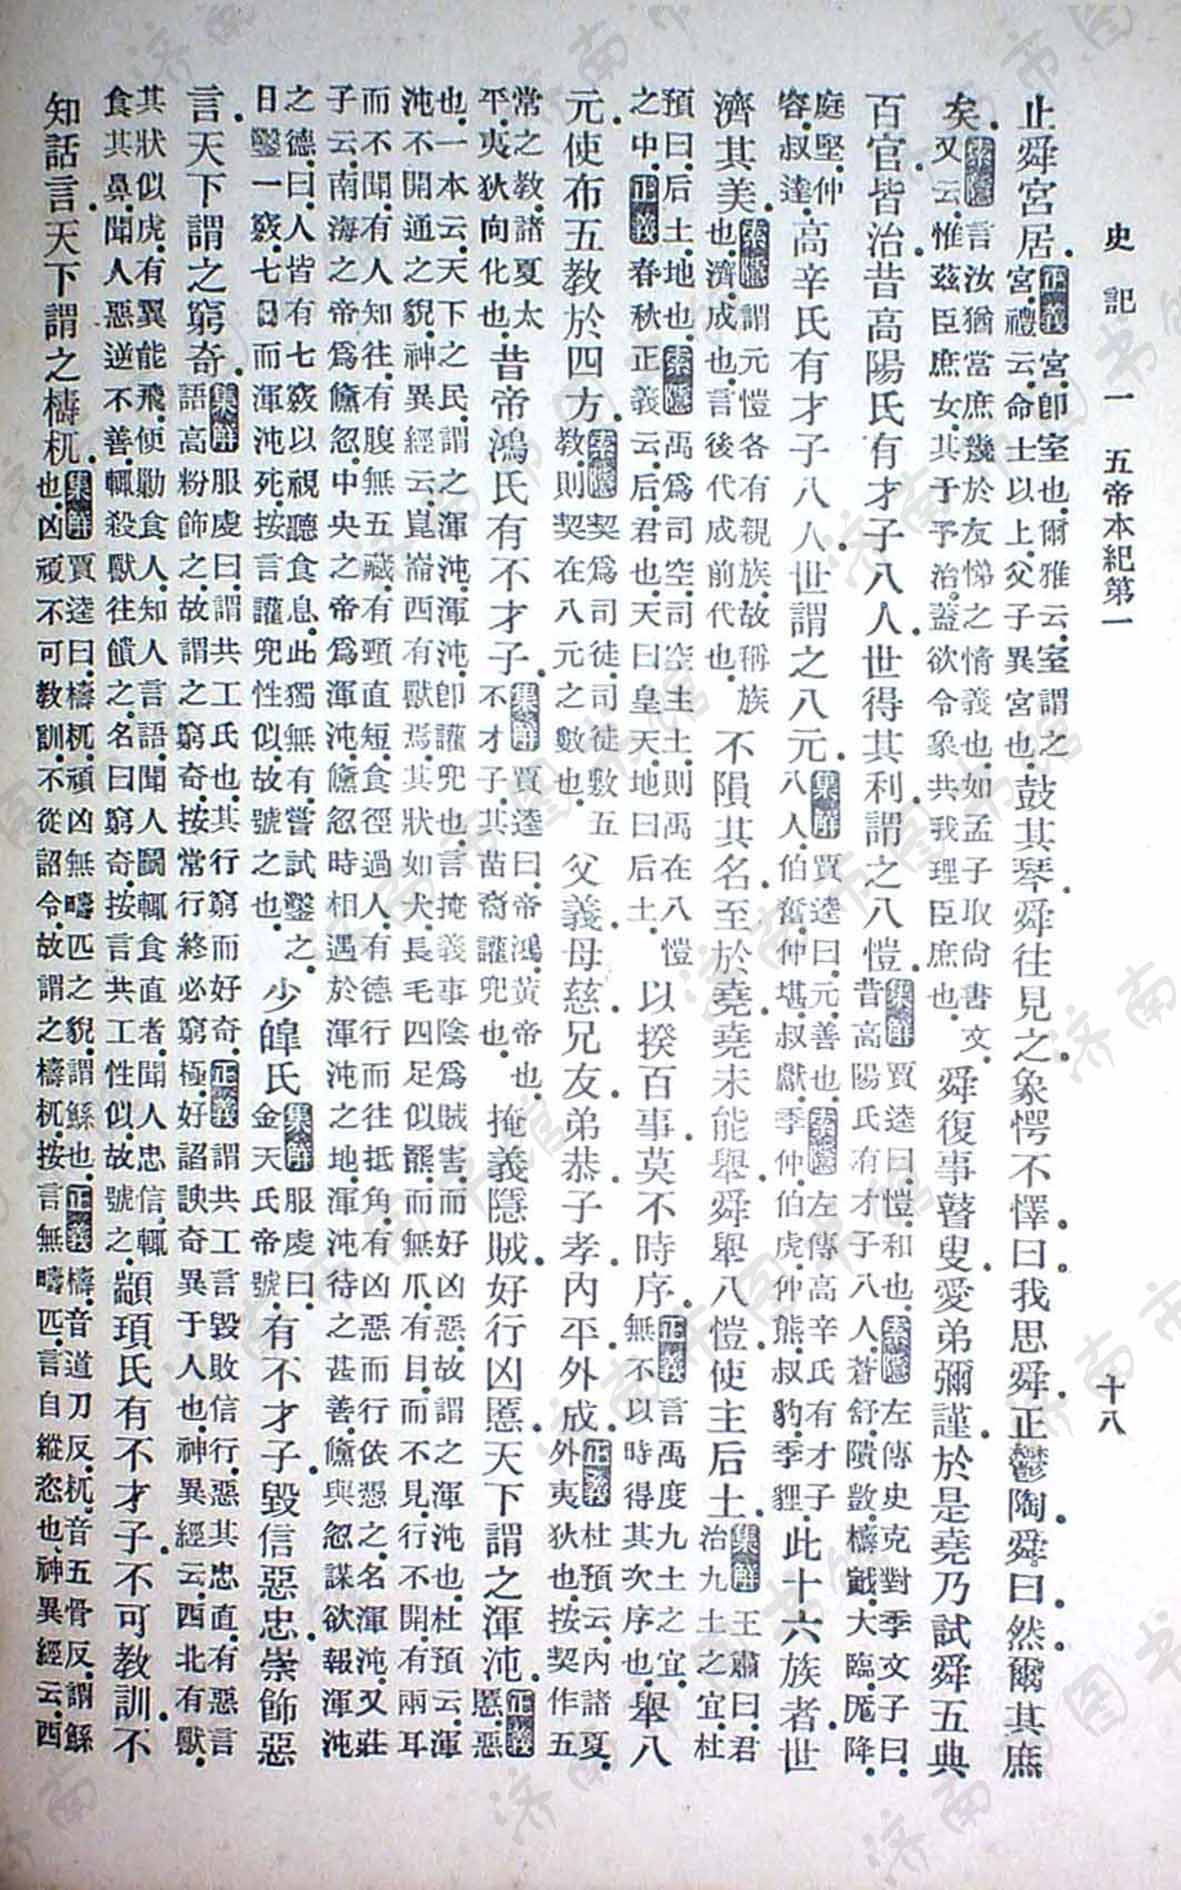 史記一 五帝本紀第一 十八
止舜宮居。正義宮。即室也。爾雅云。室謂之宮。禮云。命士以上。父子異宮也。鼓其琴。舜往見之。象愕不懌。曰。我思舜。正鬱陶。舜曰。然。爾其庶
矣。索隱言汝猶當庶幾於友悌之情義也。如孟子取尚書文。又云。惟茲臣庶。女其于予治。蓋欲令象共我理臣庶也。舜復事瞽叟。愛弟彌謹。於是堯乃試舜五典
百官。皆治。昔高陽氏有才子八人。世得其利。謂之八愷。集解賈逵曰。愷。和也。索隱左傳史克對季文子曰。昔高陽氏有才子八人。蒼舒。隤敱。檮戭。大臨。厖降。
庭堅。仲容。叔達。高辛氏有才子八人。世謂之八元。集解賈逵曰。元。善也。索隱左傳高辛氏有才子八人。伯奮。仲堪。叔獻。季仲。伯虎。仲熊。叔豹。季貍。此十六族者。世
濟其美。索隱謂元愷各有親族。故稱族也。濟。成也。言後代成前代也。不隕其名。至於堯。堯未能舉。舜舉八愷。使主后土。集解王肅曰。君治九土之宜。杜
預曰。后土。地也。索隱禹爲司空。司空主土。則禹在八愷之中。正義春秋正義云。后。君也。天曰皇天。地曰后土。以揆百事。莫不時序。正義言禹度九土之宜。無不以時得其次序也。舉八
元。使布五教於四方。索隱契爲司徒。司徒敷五教。則契在八元之數也。父義。母慈。兄友。弟恭。子孝。內平外成。正義杜預云。內諸夏。外夷狄也。按契作五
常之教。諸夏太平。夷狄向化也。昔帝鴻氏有不才子。集解賈逵曰。帝鴻。黃帝也。不才子。其苗裔讙兜也。掩義隱賊。好行凶慝。天下謂之渾沌。正義慝。惡
也。一本云。天下之民。謂之渾沌。渾沌即讙兜也。言掩義事。陰爲賊害。而好凶惡。故謂之渾沌也。杜預云。渾
沌不開通之貌。神異經云。崑崙西有獸焉。其狀如犬。長毛四足。似羆而無爪。有目而不見。行不開。有兩耳
而不聞。有人知往。有腹無五藏。有頸直短。食徑過人。有德行而往抵角。有凶惡而行依憑之。名渾沌。又莊
子云。南海之帝爲儵忽。中央之帝爲渾沌。儵忽時相遇於渾沌之地。渾沌待之甚善。儵與忽謀欲報渾沌
之德。曰。人皆有七竅以視聽食息。此獨無有。嘗試鑿之。日鑿一竅。七日而渾沌死。按言讙兜性似。故號之也。少皥氏集解服虔曰。金天氏帝號。有不才子。毀信惡忠。崇飾惡
言。天下謂之窮奇。集解服虔曰。謂共工氏也。其行窮而好奇。正義謂共工言毀敗信行。惡其忠直。有惡言語。高粉飾之。故謂之窮奇。按常行終必窮極。好諂諛奇異于人也。神異經云。西北有獸。
其狀似虎。有翼能飛。便勦食人。知人言語。聞人鬭。輒食直者。聞人忠信。輒食其鼻。聞人惡逆不善。輒殺獸往饋之。名曰窮奇。按言共工性似。故號之。顓頊氏有不才子。不可教訓。不
知話言。天下謂之檮杌。集解賈逵曰。檮杌。頑凶無疇匹之貌。謂鯀也。正義檮。音道刀反。杌。音五骨反。謂鯀也。凶頑不可教訓。不從詔令。故謂之檮杌。按言無疇匹。言自縱恣也。神異經云。西